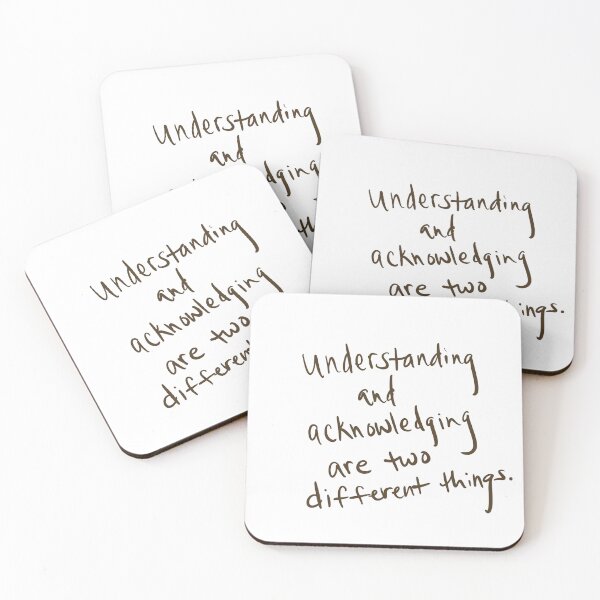 Understanding
and
dging
Understanding
and
acknowledging
are two
ings.
Understanding
and
acknowledging
are two
different
Understanding
and
acknowledging
are two
different things.